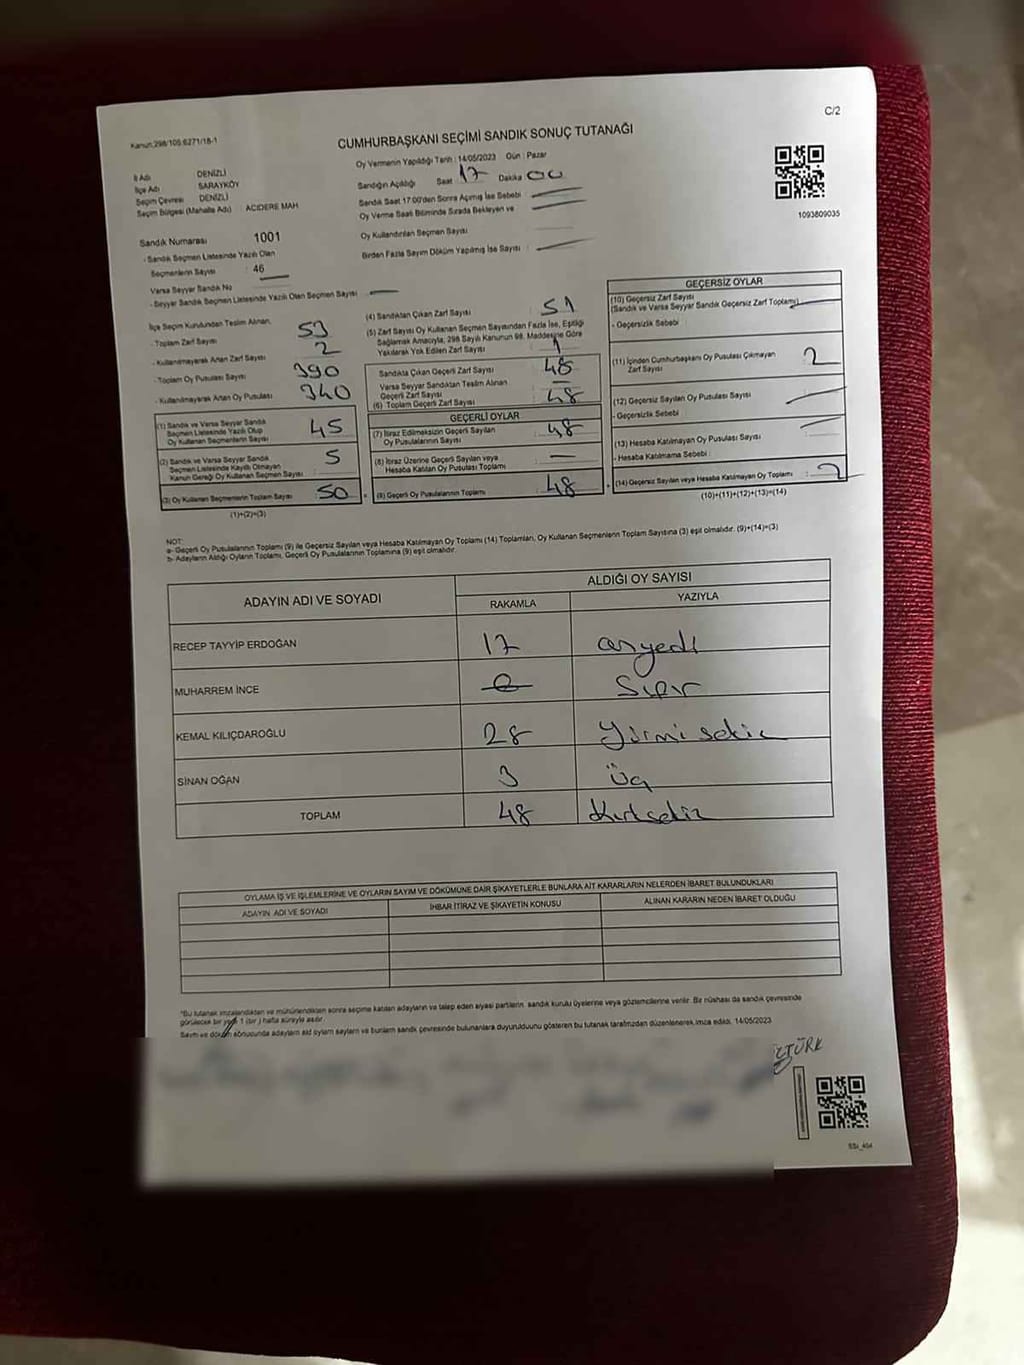 C/2
Kanun.298/105.6271/18-1
CUMHURBAŞKANI SEÇİMİ SANDIK SONUÇ TUTANAĞI
İl Adı DENİZLİ
İlçe Adı SARAYKÖY
Seçim Çevresi DENİZLİ
Seçim Bölgesi (Mahalle Adı) ACIDERE MAH
Sandık Numarası 1001
- Sandık Seçmen Listesinde Yazılı Olan
Seçmenlerin Sayısı : 46
Varsa Seyyar Sandık No
- Seyyar Sandık Seçmen Listesinde Yazılı Olan Seçmen Sayısı :
Oy Vermenin Yapıldığı Tarih : 14/05/2023 Gün : Pazar
Sandığın Açıldığı Saat 17 Dakika 00
Sandık Saat 17:00'den Sonra Açılmış İse Sebebi :
Oy Verme Saati Bitiminde Sırada Bekleyen ve
Oy Kullandırılan Seçmen Sayısı
Birden Fazla Sayım Döküm Yapılmış İse Sayısı :
1093809035
İlçe Seçim Kurulundan Teslim Alınan,
- Toplam Zarf Sayısı : 53
- Kullanılmayarak Artan Zarf Sayısı : 2
- Toplam Oy Pusulası Sayısı : 390
- Kullanılmayarak Artan Oy Pusulası : 340
(1) Sandık ve Varsa Seyyar Sandık
Seçmen Listesinde Yazılı Olup
Oy Kullanan Seçmenlerin Sayısı : 45
(2) Sandık ve Varsa Seyyar Sandık
Seçmen Listesinde Kayıtlı Olmayan
Kanun Gereği Oy Kullanan Seçmen Sayısı : 5
(3) Oy Kullanan Seçmenlerin Toplam Sayısı : 50
(1)+(2)=(3)
(4) Sandıktan Çıkan Zarf Sayısı : 51
(5) Zarf Sayısı Oy Kullanan Seçmen Sayısından Fazla İse, Eşitliği
Sağlamak Amacıyla; 298 Sayılı Kanunun 98. Maddesine Göre
Yakılarak Yok Edilen Zarf Sayısı : 1
Sandıkta Çıkan Geçerli Zarf Sayısı : 48
Varsa Seyyar Sandıktan Teslim Alınan
Geçerli Zarf Sayısı
(6) Toplam Geçerli Zarf Sayısı : 48
GEÇERLİ OYLAR
(7) İtiraz Edilmeksizin Geçerli Sayılan
Oy Pusulalarının Sayısı : 48
(8) İtiraz Üzerine Geçerli Sayılan veya
Hesaba Katılan Oy Pusulası Toplamı : —
(9) Geçerli Oy Pusulalarının Toplamı : 48
GEÇERSİZ OYLAR
(10) Geçersiz Zarf Sayısı
(Sandık ve Varsa Seyyar Sandık Geçersiz Zarf Toplamı)
- Geçersizlik Sebebi :
(11) İçinden Cumhurbaşkanı Oy Pusulası Çıkmayan
Zarf Sayısı : 2
(12) Geçersiz Sayılan Oy Pusulası Sayısı :
- Geçersizlik Sebebi
(13) Hesaba Katılmayan Oy Pusulası Sayısı :
- Hesaba Katılmama Sebebi :
(14) Geçersiz Sayılan veya Hesaba Katılmayan Oy Toplamı : 2
(10)+(11)+(12)+(13)=(14)
NOT:
a- Geçerli Oy Pusulalarının Toplamı (9) ile Geçersiz Sayılan veya Hesaba Katılmayan Oy Toplamı (14) Toplamları, Oy Kullanan Seçmenlerin Toplam Sayısına (3) eşit olmalıdır. (9)+(14)=(3)
b- Adayların Aldığı Oyların Toplamı, Geçerli Oy Pusulalarının Toplamına (9) eşit olmalıdır.
ADAYIN ADI VE SOYADI ALDIĞI OY SAYISI
RAKAMLA YAZIYLA
RECEP TAYYİP ERDOĞAN 17 onyedi
MUHARREM İNCE 0 Sıfır
KEMAL KILIÇDAROĞLU 28 Yirmi sekiz
SİNAN OĞAN 3 Üç
TOPLAM 48 Kırksekiz
OYLAMA İŞ VE İŞLEMLERİNE VE OYLARIN SAYIM VE DÖKÜMÜNE DAİR ŞİKAYETLERLE BUNLARA AİT KARARLARIN NELERDEN İBARET BULUNDUKLARI
ADAYIN ADI VE SOYADI İHBAR İTİRAZ VE ŞİKAYETİN KONUSU ALINAN KARARIN NEDEN İBARET OLDUĞU
*Bu tutanak imzalandıktan ve mühürlendikten sonra seçime katılan adayların ve talep eden siyasi partilerin, sandık kurulu üyelerine veya gözlemcilerine verilir. Bir nüshası da sandık çevresinde
görülecek bir yere 1 (bir) hafta süreyle asılır.
Sayım ve döküm sonucunda adayların aldığı oyların sayılarını ve bunların sandık çevresinde bulunanlara duyurulduğunu gösteren bu tutanak tarafımızdan düzenlenerek imza edildi. 14/05/2023
ZTÜRK